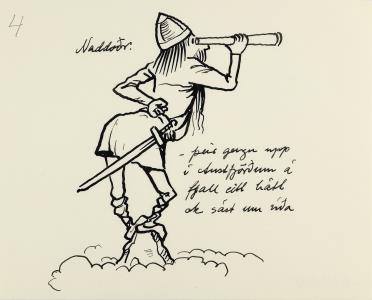 4
Naddoðr.
- þeir gengu upp
í Austfjörðum á
fjall eitt hátt
ok sást um víða